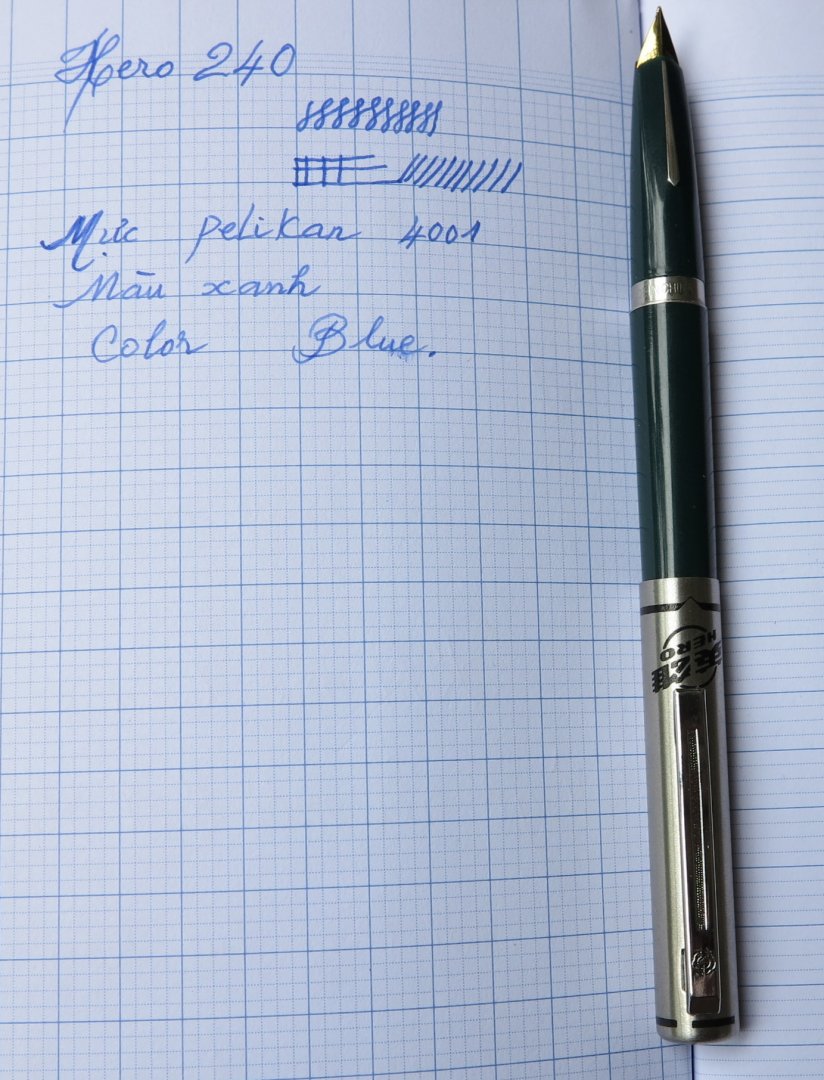 Hero 240
Mực pelikan 4001
Màu xanh
Color Blue.
英雄
HERO